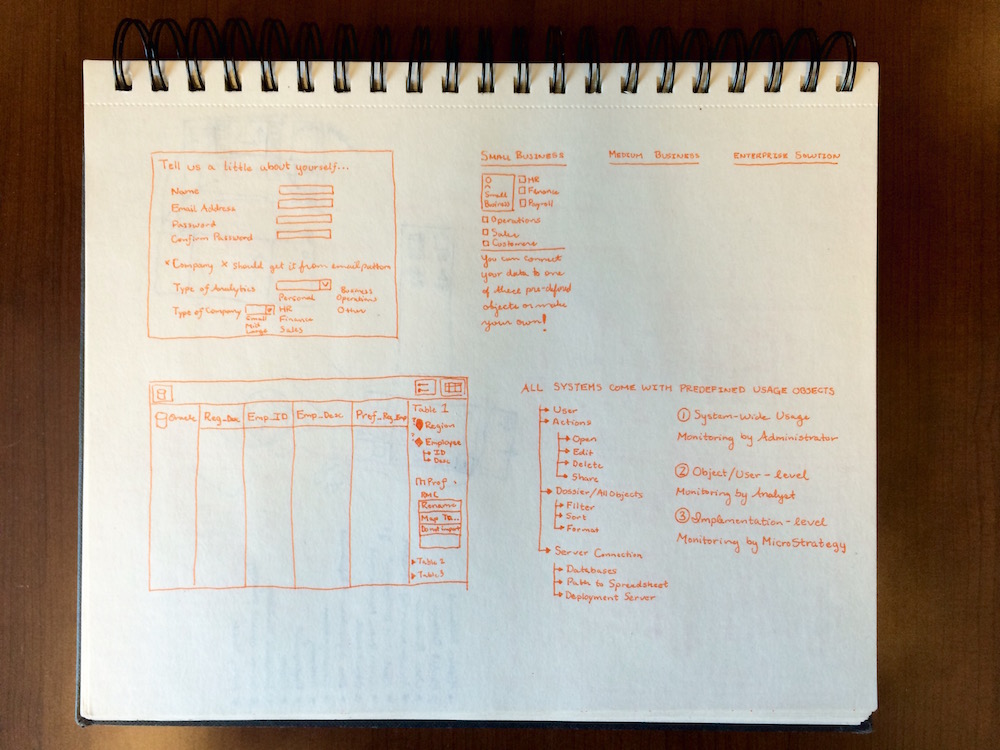 Tell us a little about yourself...
Name
Email Address
Password
Confirm Password
*Company * should get it from email pattern
Type of Analytics
Personal
HR
Finance
Sales
Business
Operations
Other
Type of Company
Small
Mid
Large
SMALL BUSINESS
Small
Business
HR
Finance
Payroll
Operations
Sales
Customers
You can connect
your data to one
of these pre-defined
objects or make
your own!
MEDIUM BUSINESS
ENTERPRISE SOLUTION
Oracle
Reg_Desc
Emp_ID
Emp_Desc
Pref_Reg_Emp
Table 1
Region
Employee
ID
Desc
Prof
RMC
Rename
Map To...
Do not Import
Table 2
Table 3
ALL SYSTEMS COME WITH PREDEFINED USAGE OBJECTS
User
Actions
Open
Edit
Delete
Share
Dossier/All Objects
Filter
Sort
Format
Server Connection
Databases
Path to Spreadsheet
Deployment Server
① System-Wide Usage
Monitoring by Administrator
② Object/User-level
Monitoring by Analyst
③ Implementation-level
Monitoring by MicroStrategy